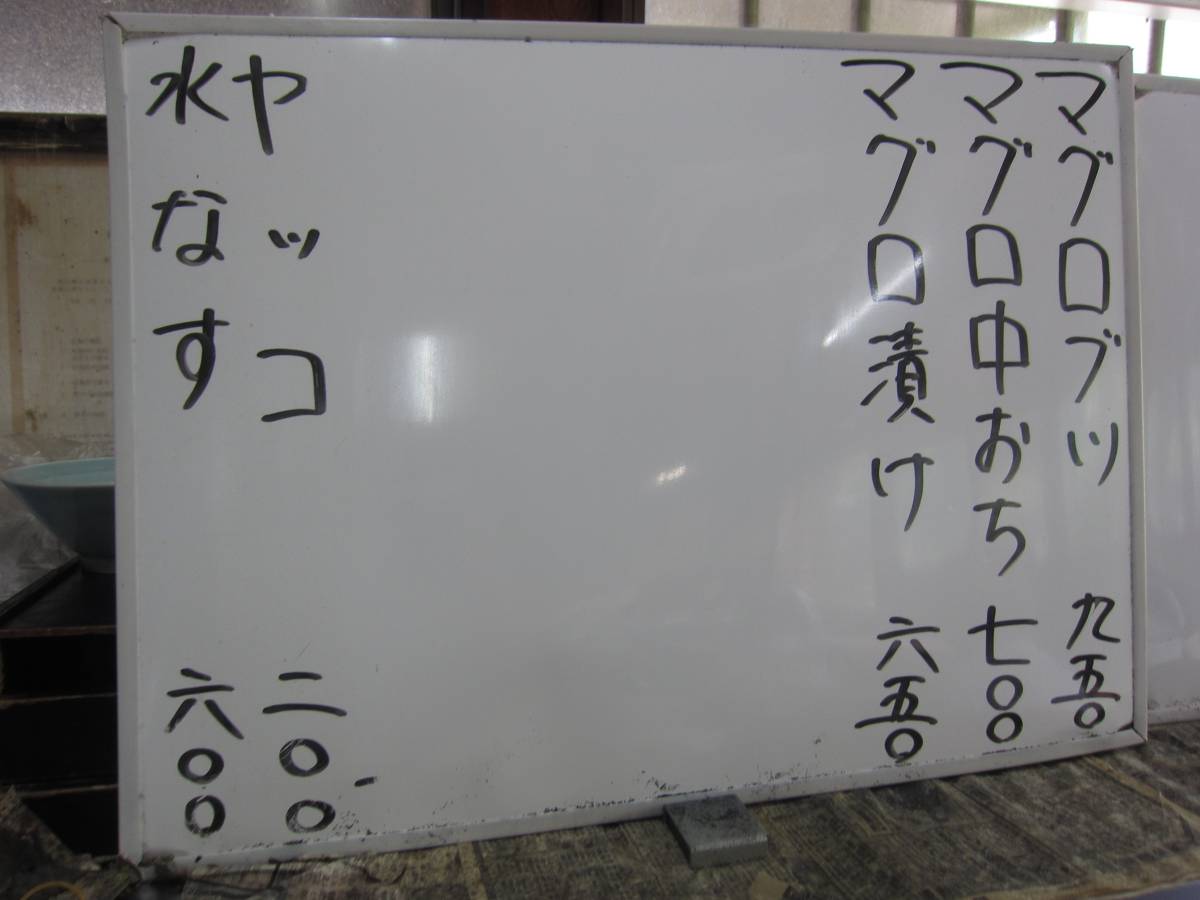 マグロブツ 九五〇
マグロ中おち 七〇〇
マグロ漬け 六五〇
ヤッコ 二〇〇
水なす 六〇〇